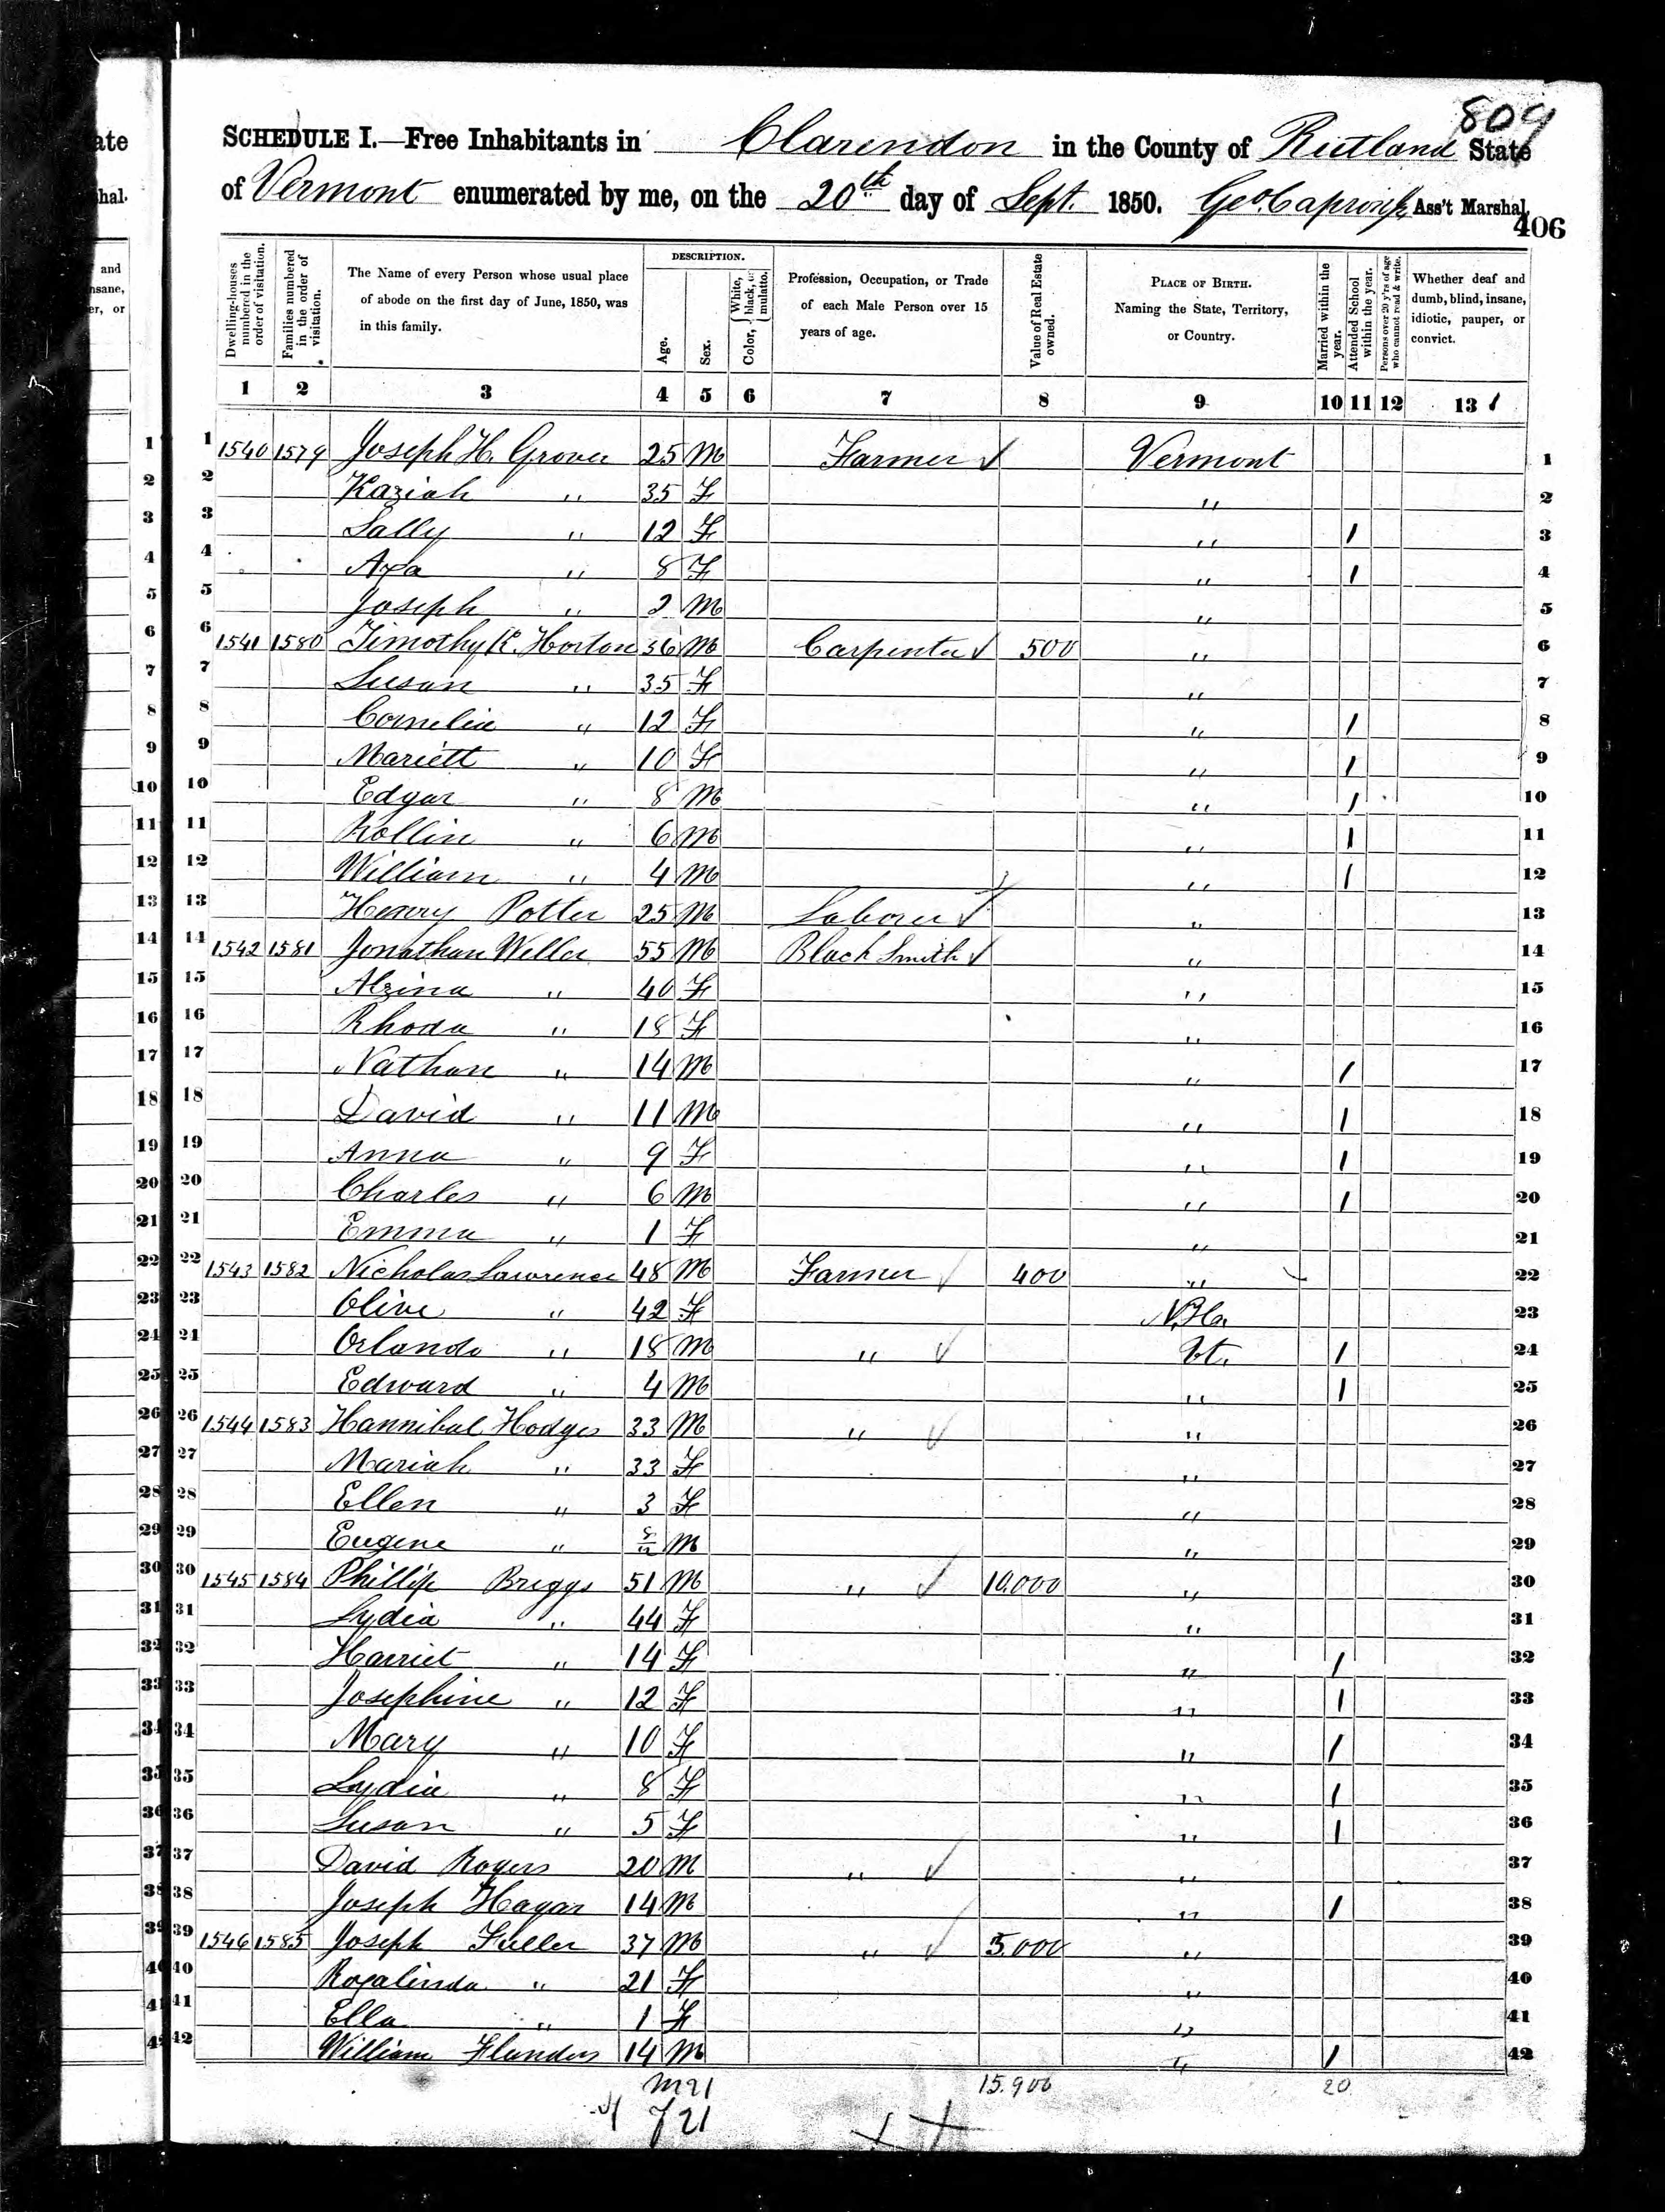 809
SCHEDULE I.—Free Inhabitants in Clarendon in the County of Rutland State
of Vermont enumerated by me, on the 20th day of Sept. 1850. Geo. Ass't Marshal.
406
Dwelling-houses numbered in the order of visitation. Families numbered in the order of visitation. The Name of every Person whose usual place of abode on the first day of June, 1850, was in this family. DESCRIPTION. Age. Sex. Color, White, black, or mulatto. Profession, Occupation, or Trade of each Male Person over 15 years of age. Value of Real Estate owned. PLACE OF BIRTH. Naming the State, Territory, or Country. Married within the year. Attended School within the year. Persons over 20 y'rs of age who cannot read & write. Whether deaf and dumb, blind, insane, idiotic, pauper, or convict.
1 2 3 4 5 6 7 8 9 10 11 12 13
1 1540 1579 Joseph H. Grover 25 M Farmer Vermont 1
2 Kaziah " 35 F " 2
3 Sally " 12 F " 1 3
4 Axa " 8 F " 1 4
5 Joseph " 2 M " 5
6 1541 1580 Timothy K. Horton 36 M Carpenter 500 " 6
7 Susan " 35 F " 7
8 Cornelia " 12 F " 1 8
9 Mariett " 10 F " 1 9
10 Edgar " 8 M " 1 10
11 Rollin " 6 M " 1 11
12 William " 4 M " 1 12
13 Henry Potter 25 M Laborer " 13
14 1542 1581 Jonathan Weller 55 M Black Smith " 14
15 Alzina " 40 F " 15
16 Rhoda " 18 F " 16
17 Nathan " 14 M " 1 17
18 David " 11 M " 1 18
19 Anna " 9 F " 1 19
20 Charles " 6 M " 1 20
21 Emma " 1 F " 21
22 1543 1582 Nicholas Lawrence 48 M Farmer 400 " 22
23 Olive " 42 F N.H. 23
24 Orlando " 18 M " Vt. 1 24
25 Edward " 4 M " 1 25
26 1544 1583 Hannibal Hodges 33 M " " 26
27 Mariah " 33 F " 27
28 Ellen " 3 F " 28
29 Eugene " 8/12 M " 29
30 1545 1584 Phillip Briggs 51 M " 10.000 " 30
31 Lydia " 44 F " 31
32 Harriet " 14 F " 1 32
33 Josephine " 12 F " 1 33
34 Mary " 10 F " 1 34
35 Lydia " 8 F " 1 35
36 Susan " 5 F " 1 36
37 David Rogers 20 M " " 37
38 Joseph Hagar 14 M " 1 38
39 1546 1585 Joseph Fuller 37 M " 5.000 " 39
40 Roxalinda " 21 F " 40
41 Ella " 1 F " 41
42 William Flanders 14 M " 1 42
M 21 15.900 20
F 21